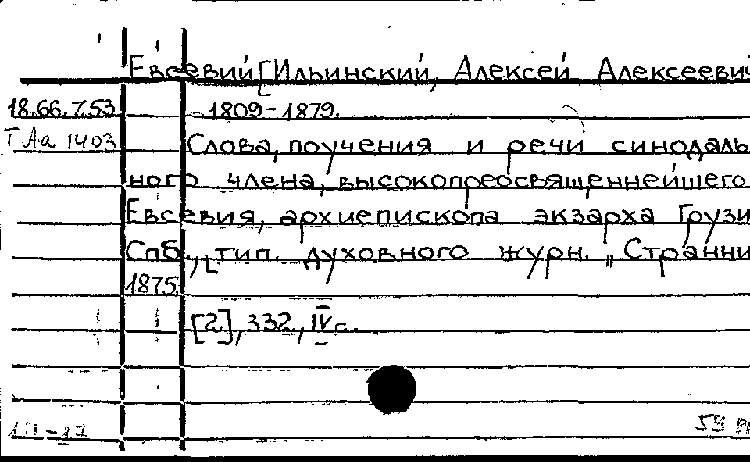 Евсевий [Ильинский, Алексей Алексеевич
18.66.7.53 1809-1879.
Т Аа 1403 Слова, поучения и речи синодаль
ного члена, высокопреосвященнейшего
Евсевия, архиепископа экзарха Грузи
Спб., тип. духовного журн. „Странни
1875.
[2], 332, IV с.